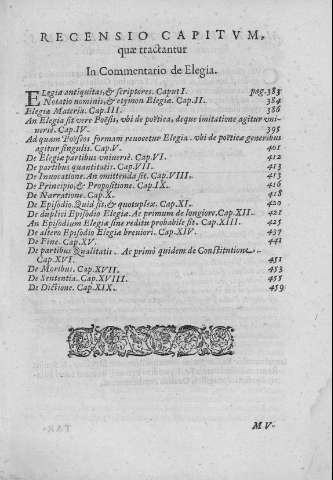 RECENSIO CAPITVM,
quæ tractantur
In Commentario de Elegia.
ELegiæ antiquitas, & scriptores. Caput I. pag. 383
Notatio nominis, & etymon Elegiæ. Cap. II. 384
Elegiæ Materia. Cap. III. 386
An Elegia sit vere Poësis, vbi de poëtica, deque imitatione agitur vni-
uersè. Cap. IV. 395
Ad quam Poëseos formam reuocetur Elegia. vbi de poëticæ generibus
agitur singulis. Cap. V. 401
De Elegiæ partibus vniuersè. Cap. VI. 412
De partibus quantitatis. Cap. VII. 413
De Inuocatione. An omittenda sit. Cap. VIII. 413
De Principio, & Propositione. Cap. IX. 416
De Narratione. Cap. X. 418
De Episodio. Quid sit, & quotuplex. Cap. XI. 420
De duplici Episodio Elegiæ. Ac primum de longiore. Cap. XII. 421
An Episodium Elegiæ sine reditu probabile sit. Cap. XIII. 425
De altero Episodio Elegiæ breuiori. Cap. XIV. 437
De Fine. Cap. XV. 442
De partibus Qualitatis. Ac primò quidem de Constitutione.
Cap. XVI. 451
De Moribus. Cap. XVII. 453
De Sententia. Cap. XVIII. 455
De Dictione. Cap. XIX. 459
M V-